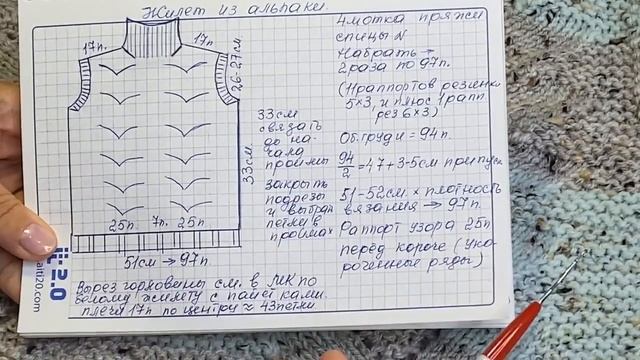 Жилет из альпаки.
17п.
17п.
26-27см.
33см.
25п. 7п. 25п.
51см → 97п.
33см
связать
до на-
чала
проймы
закрыть
подрезы
и выбран
петли в
проймах
4 мотка пряжи
спицы N
Набрать →
2 раза по 97п.
(11 раппортов резинки
5×3, и плюс 1 рапп
рез 6×3)
Об. груди = 94п.
94/2 = 47 + 3-5см припуск
51-52см. × плотность
вязания → 97п.
Раппорт узора 25п
перед короче (уко-
роченные ряды)
Вырез горловины см. в МК по
белому жилету с пайетками.
плечи 17п по центру ≈ 43петли.